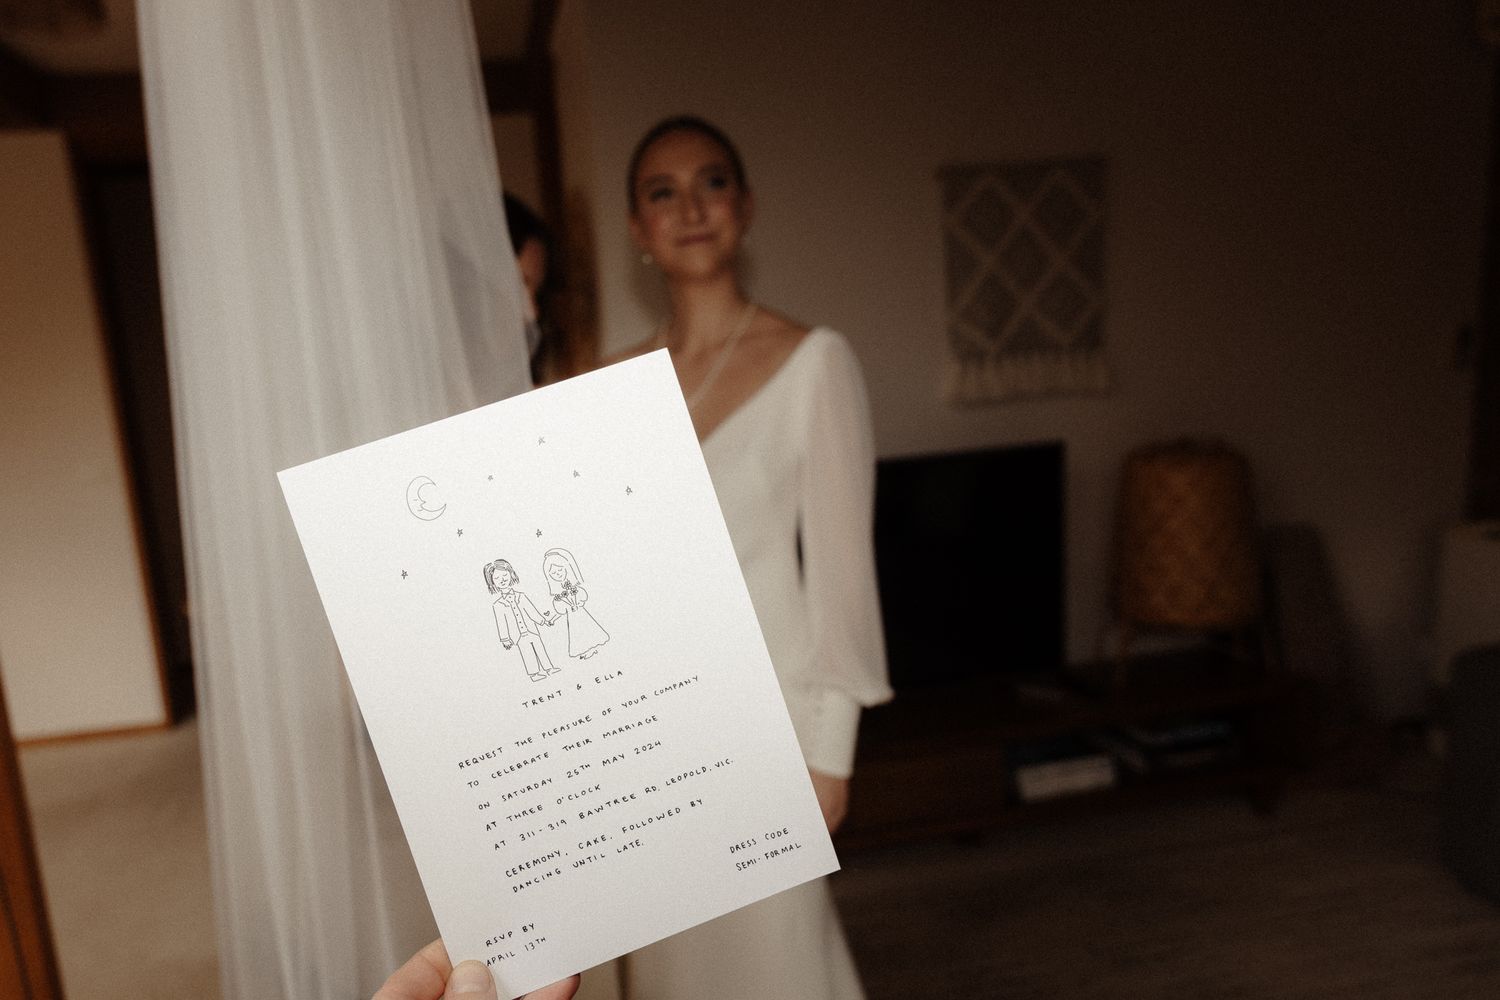 TRENT & ELLA
REQUEST THE PLEASURE OF YOUR COMPANY
TO CELEBRATE THEIR MARRIAGE
ON SATURDAY 25TH MAY 2024
AT THREE O'CLOCK
AT 311-319 BAWTREE RD, LEOPOLD, VIC.
CEREMONY, CAKE, FOLLOWED BY
DANCING UNTIL LATE.
DRESS CODE
SEMI-FORMAL
RSVP BY
APRIL 13TH